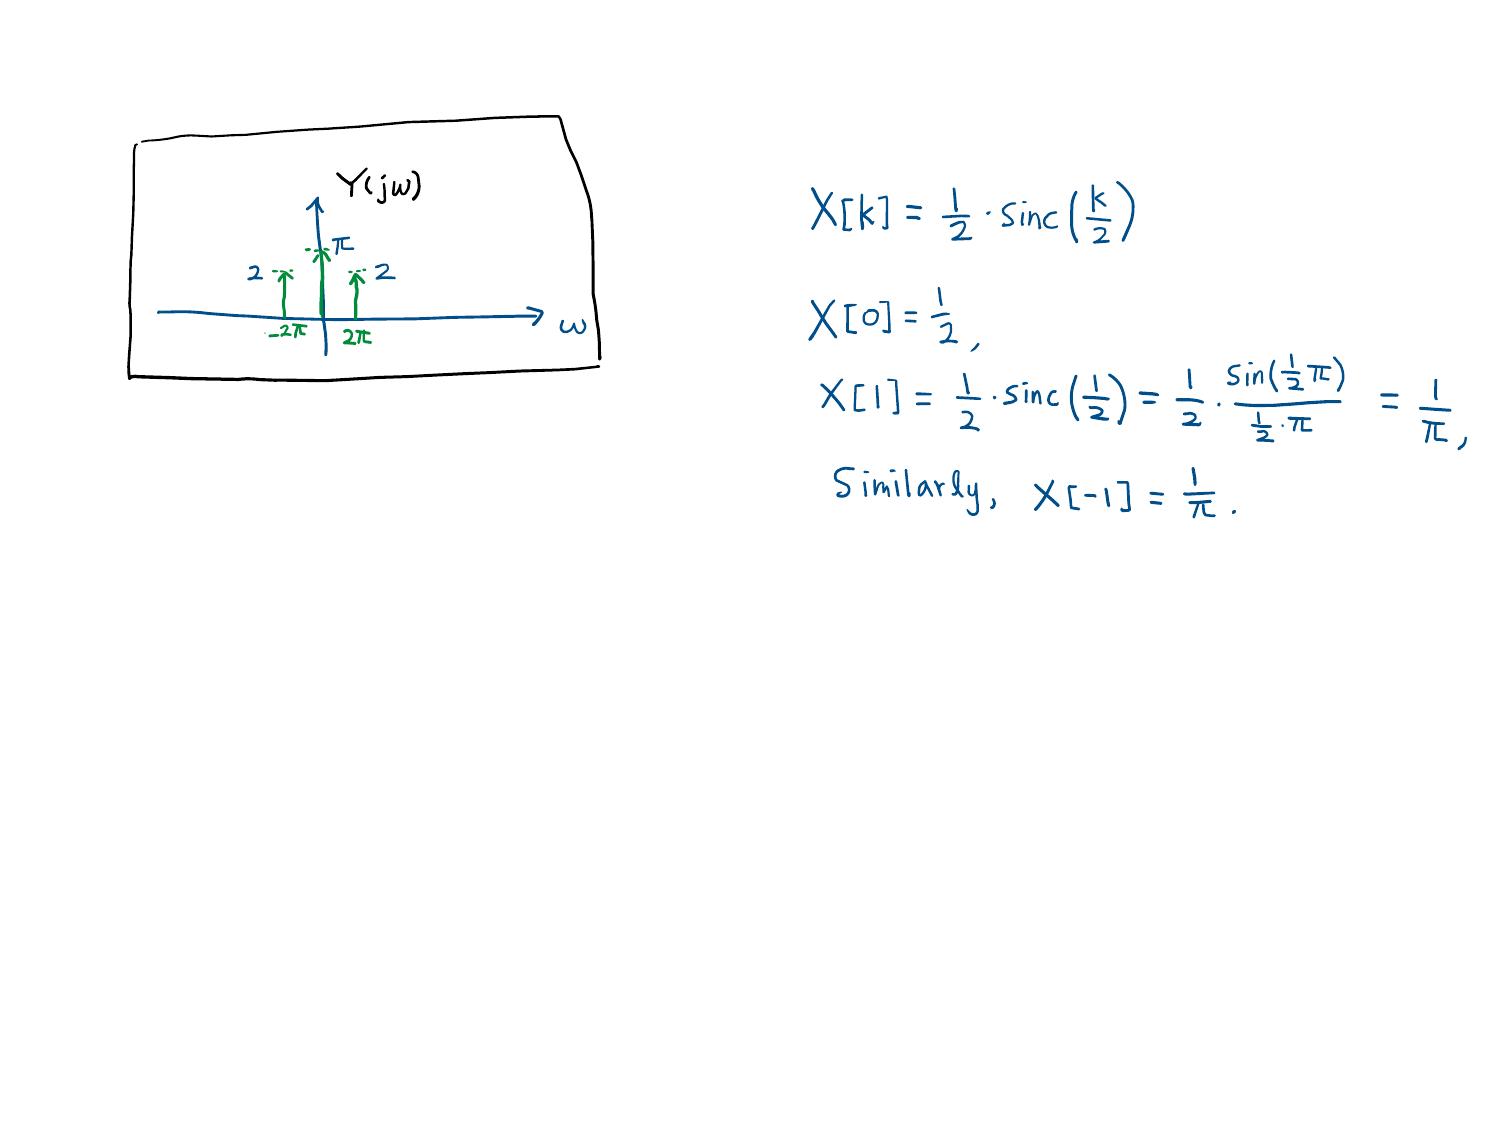 Y(jω)
π
2
2
-2π
2π
ω
X[k] = 1/2 · sinc(k/2)
X[0] = 1/2,
X[1] = 1/2 · sinc(1/2) = 1/2 · sin(1/2 π) / (1/2 · π) = 1/π,
Similarly, X[-1] = 1/π.